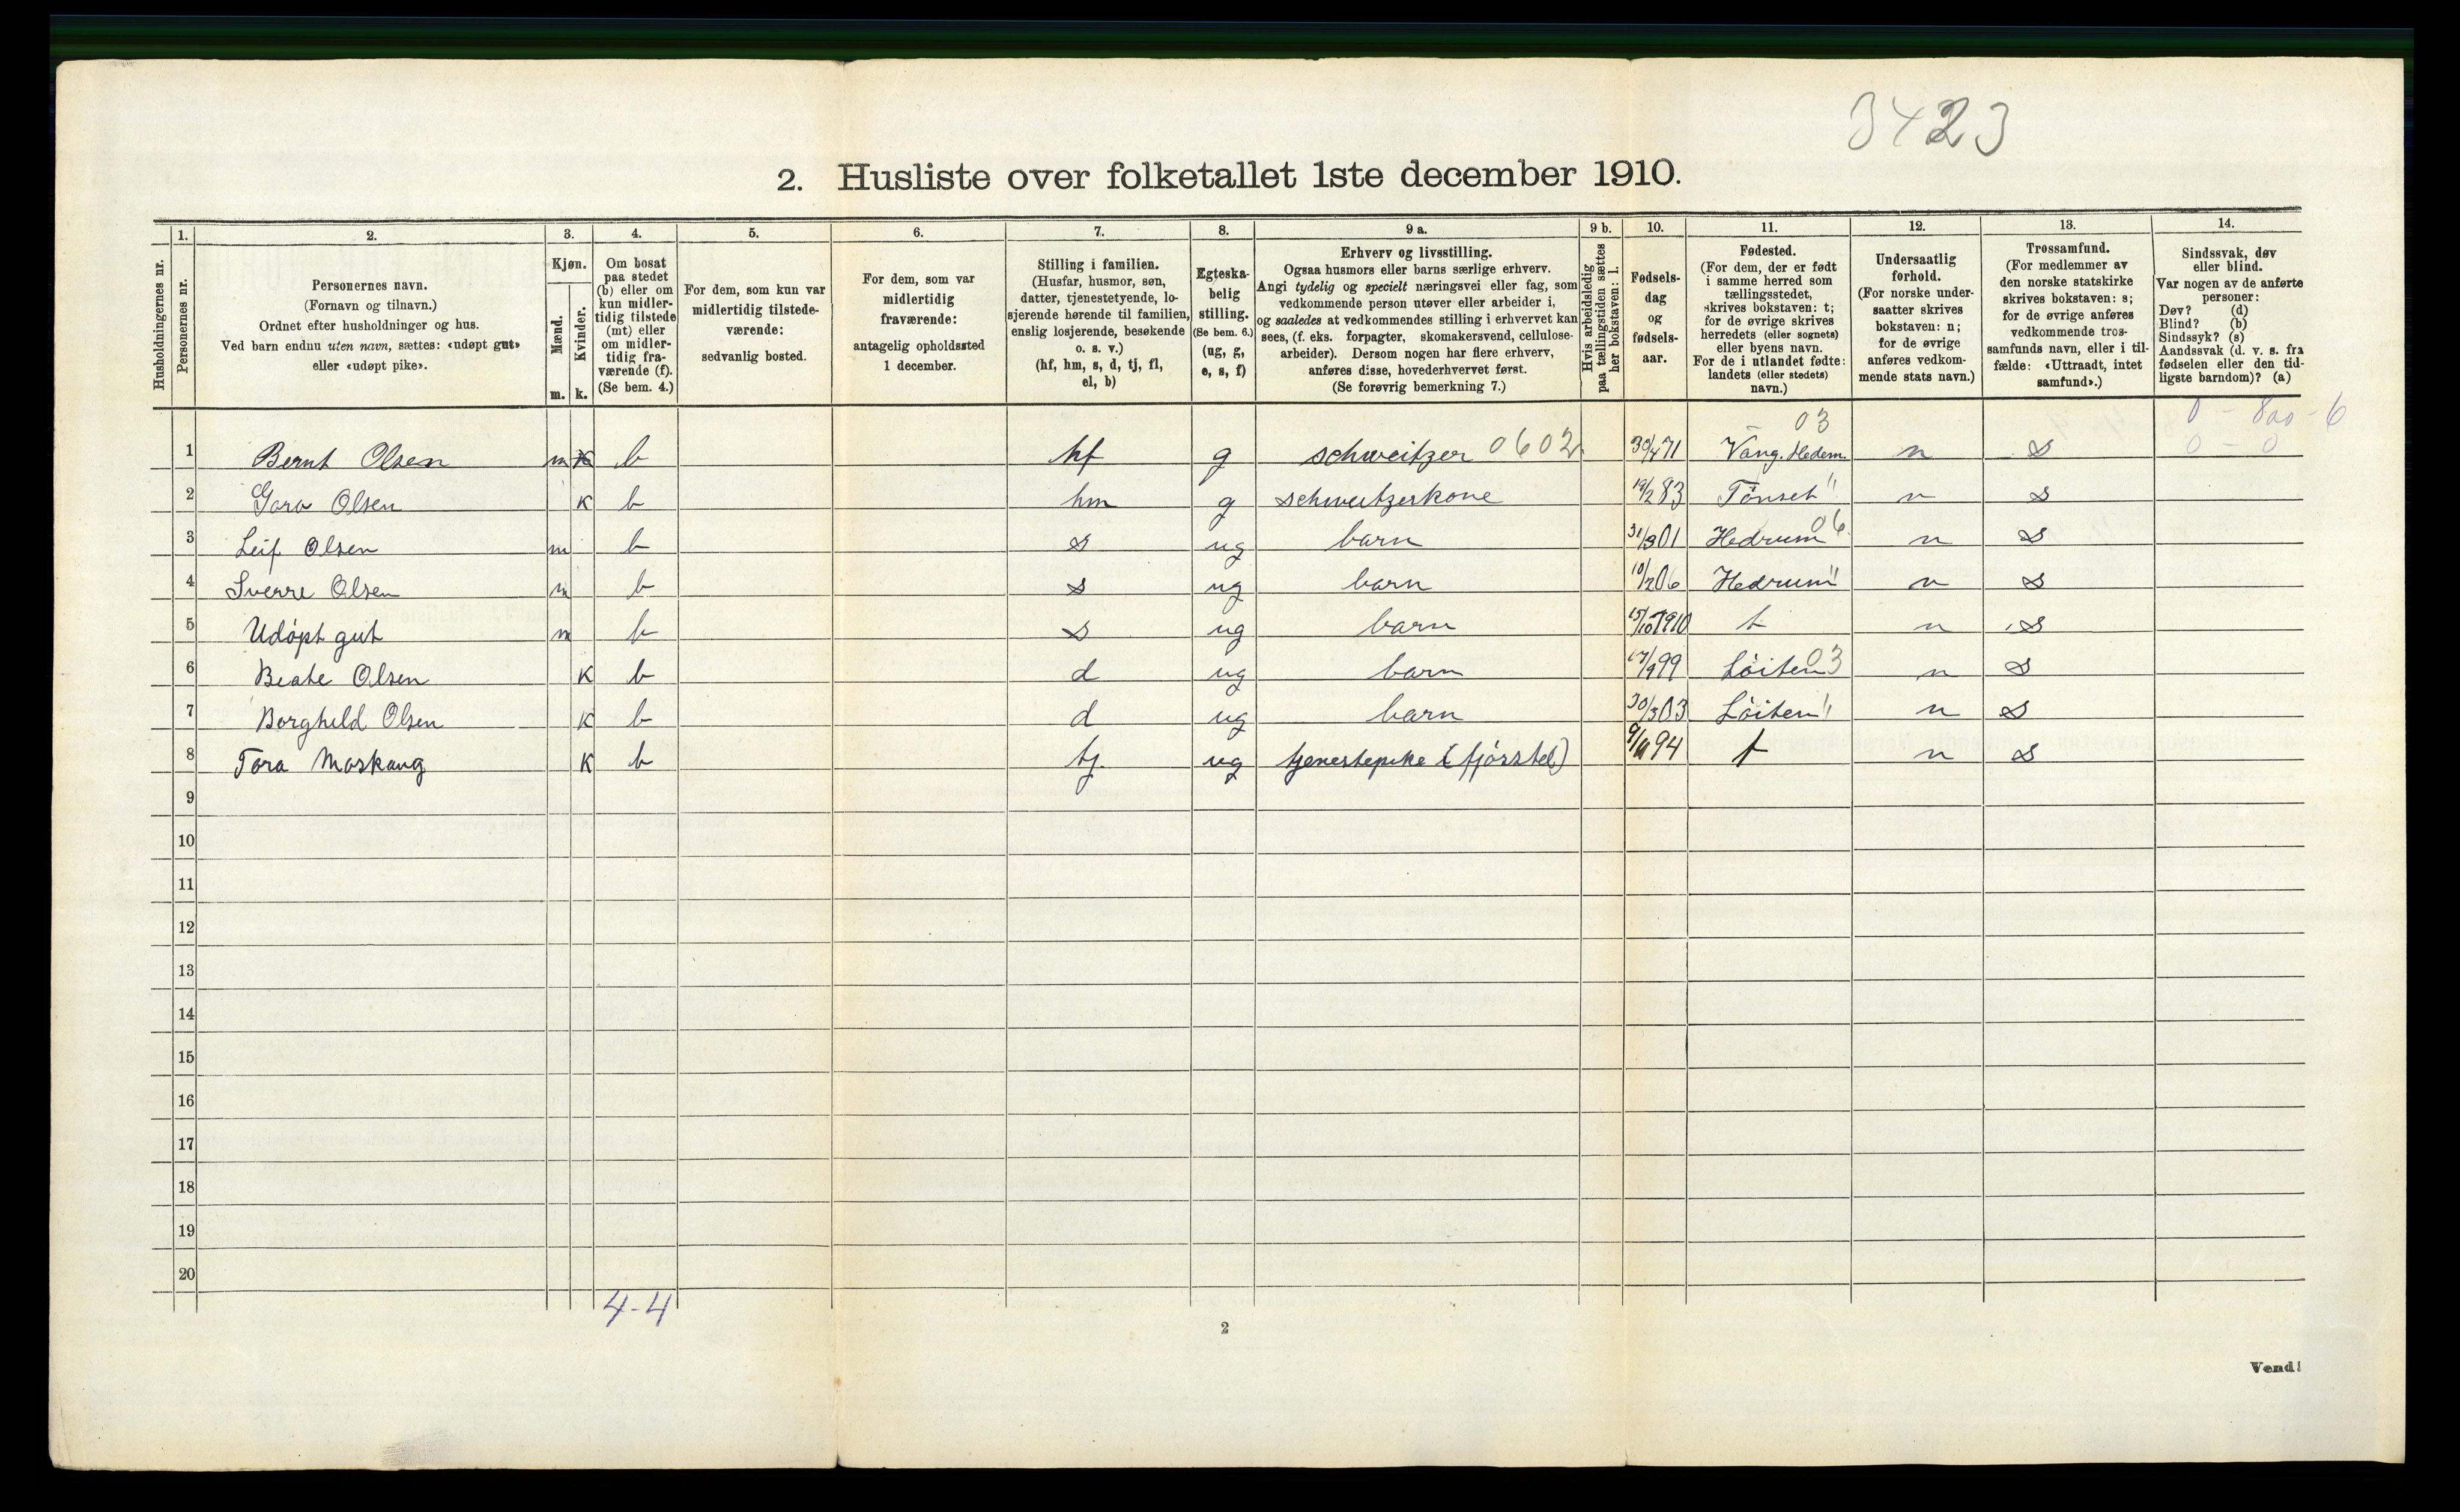 3423
2. Husliste over folketallet 1ste december 1910.
Husholdningernes nr.
1.
Personernes nr.
2.
Personernes navn.
(Fornavn og tilnavn.)
Ordnet efter husholdninger og hus.
Ved barn endnu uten navn, sættes: «udøpt gut»
eller «udøpt pike».
3.
Kjøn.
Mænd.
Kvinder.
m. k.
4.
Om bosat
paa stedet
(b) eller om
kun midler-
tidig tilstede
(mt) eller
om midler-
tidig fra-
værende (f).
(Se bem. 4.)
5.
For dem, som kun var
midlertidig tilstede-
værende:
sedvanlig bosted.
6.
For dem, som var
midlertidig
fraværende:
antagelig opholdssted
1 december.
7.
Stilling i familien.
(Husfar, husmor, søn,
datter, tjenestetyende, lo-
sjerende hørende til familien,
enslig losjerende, besøkende
o. s. v.)
(hf, hm, s, d, tj, fl,
el, b)
8.
Egteska-
belig
stilling.
(Se bem. 6.)
(ug, g,
e, s, f)
9 a.
Erhverv og livsstilling.
Ogsaa husmors eller barns særlige erhverv.
Angi tydelig og specielt næringsvei eller fag, som
vedkommende person utøver eller arbeider i,
og saaledes at vedkommendes stilling i erhvervet kan
sees, (f. eks. forpagter, skomakersvend, cellulose-
arbeider). Dersom nogen har flere erhverv,
anføres disse, hovederhvervet først.
(Se forøvrig bemerkning 7.)
9 b.
Hvis arbeidsledig
paa tællingstiden sættes
her bokstaven: l.
10.
Fødsels-
dag
og
fødsels-
aar.
11.
Fødested.
(For dem, der er født
i samme herred som
tællingsstedet,
skrives bokstaven: t;
for de øvrige skrives
herredets (eller sognets)
eller byens navn.
For de i utlandet fødte:
landets (eller stedets)
navn.)
12.
Undersaatlig
forhold.
(For norske under-
saatter skrives
bokstaven: n;
for de øvrige
anføres vedkom-
mende stats navn.)
13.
Trossamfund.
(For medlemmer av
den norske statskirke
skrives bokstaven: s;
for de øvrige anføres
vedkommende tros-
samfunds navn, eller i til-
fælde: «Uttraadt, intet
samfund».)
14.
Sindssvak, døv
eller blind.
Var nogen av de anførte
personer:
Døv? (d)
Blind? (b)
Sindssyk? (s)
Aandssvak (d. v. s. fra
fødselen eller den tid-
ligste barndom)? (a)
03 0 - 800 - 6
1 Bernt Olsen m k b hf g schweitzer 0602 30/4 71 Vang. Hedem. n s 0 - 0
2 Gara Olsen k b hm g schweitzerkone 19/2 83 Tönset " n s
06
3 Leif Olsen m b s ug barn 31/3 01 Hedrum n s
4 Sverre Olsen m b s ug barn 10/2 06 Hedrum " n s
5 Udöpt gut m b s ug barn 15/10 1910 t n s
6 Beate Olsen k b d ug barn 17/9 99 Löiten 03 n s
7 Borghild Olsen k b d ug barn 30/3 03 Löiten " n s
8 Tora Moskaug k b tj. ug tjenestepike (fjörstel) 94 t n s
9
10
11
12
13
14
15
16
17
18
19
20
4-4
2
Vend!